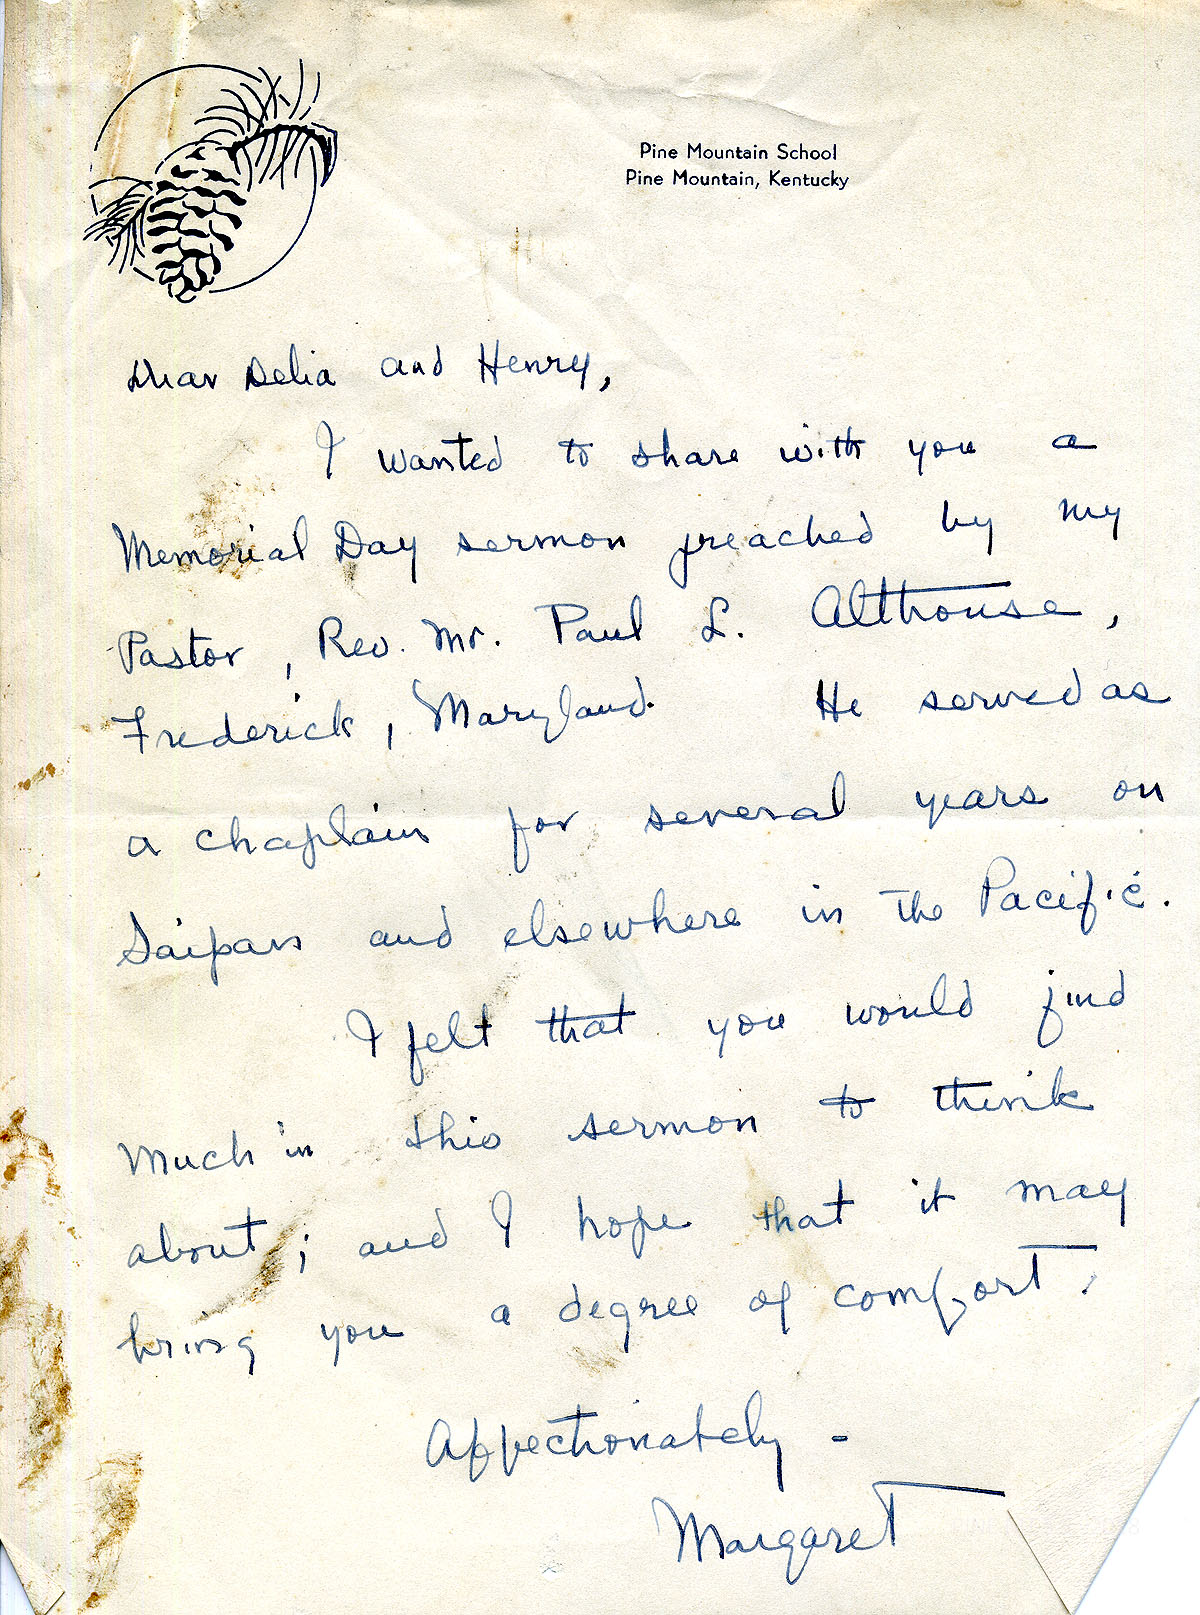 Pine Mountain School
Pine Mountain, Kentucky
Dear Delia and Henry,
I wanted to share with you a
Memorial Day sermon preached by my
Pastor, Rev. Mr. Paul L. Althouse,
Frederick, Maryland. He served as
a chaplain for several years on
Saipan and elsewhere in the Pacific.
I felt that you would find
much in this sermon to think
about; and I hope that it may
bring you a degree of comfort.
Affectionately -
Margaret